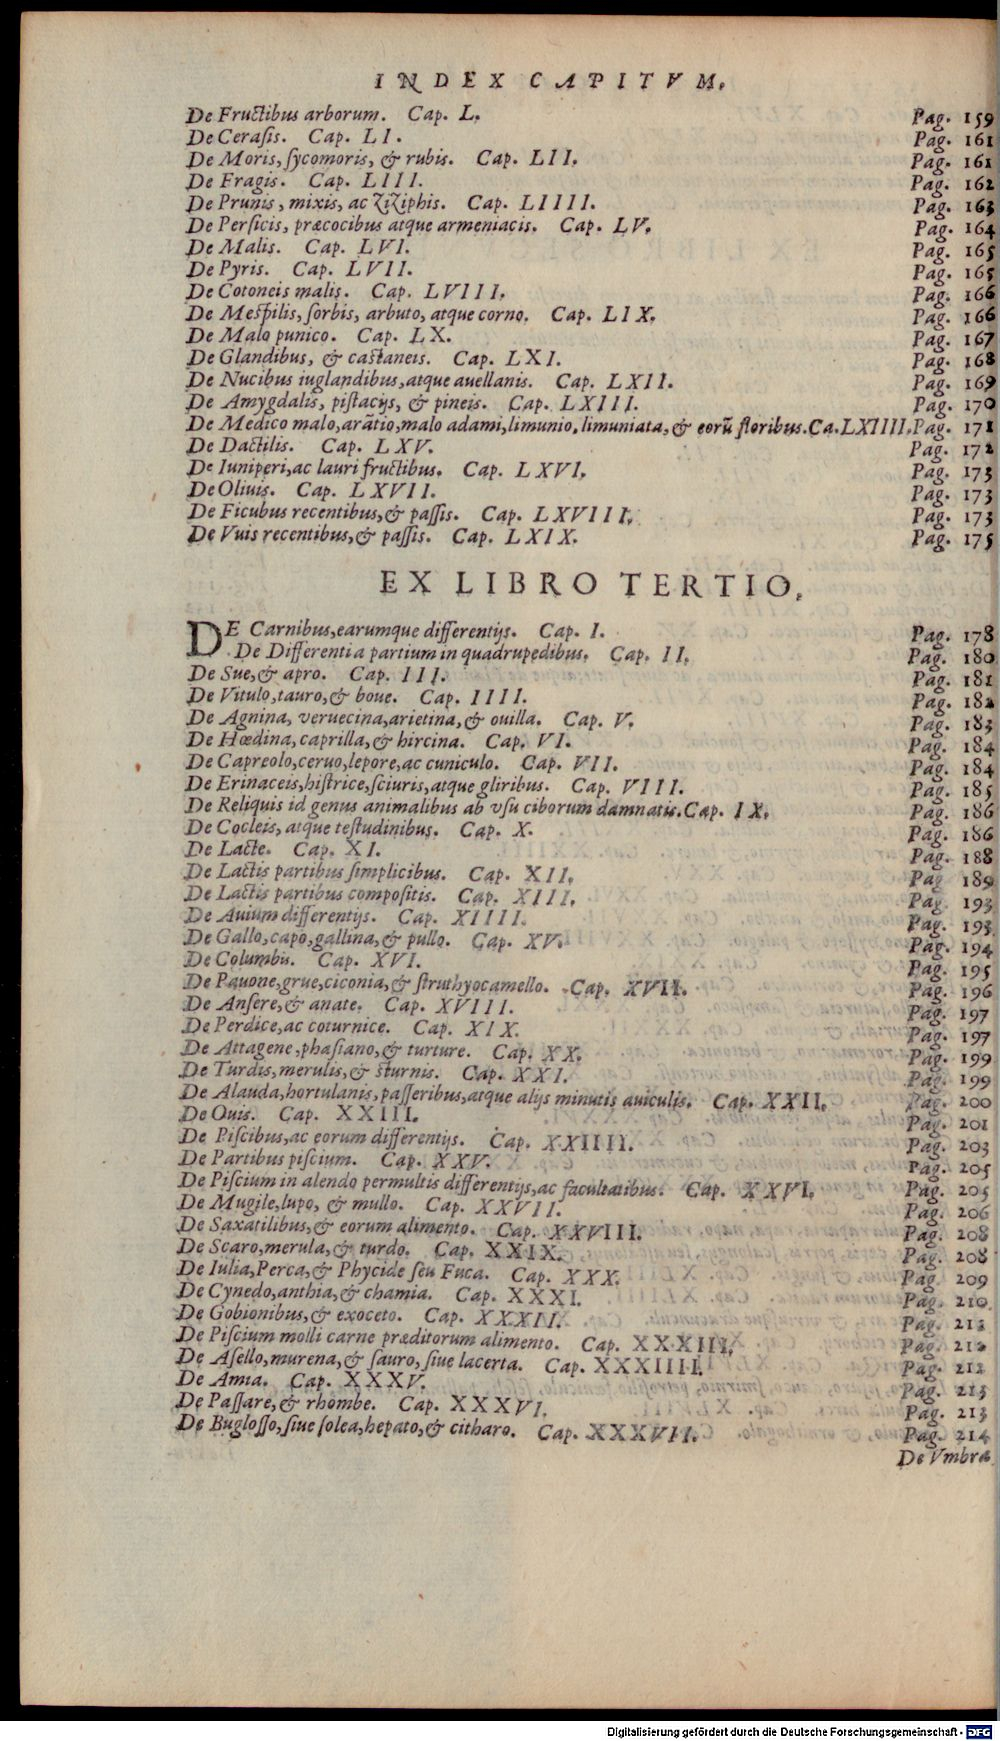 INDEX CAPITVM.
De Fructibus arborum. Cap. L. Pag. 159
De Cerasis. Cap. LI. Pag. 161
De Moris, ſycomoris, & rubis. Cap. LII. Pag. 161
De Fragis. Cap. LIII. Pag. 162
De Prunis, mixis, ac ziziphis. Cap. LIIII. Pag. 163
De Perſicis, præcocibus atque armeniacis. Cap. LV. Pag. 164
De Malis. Cap. LVI. Pag. 165
De Pyris. Cap. LVII. Pag. 165
De Cotoneis malis. Cap. LVIII. Pag. 166
De Meſpilis, ſorbis, arbuto, atque corno. Cap. LIX. Pag. 166
De Malo punico. Cap. LX. Pag. 167
De Glandibus, & caſtaneis. Cap. LXI. Pag. 168
De Nucibus iuglandibus, atque auellanis. Cap. LXII. Pag. 169
De Amygdalis, piſtacijs, & pineis. Cap. LXIII. Pag. 170
De Medico malo, arãtio, malo adami, limunio, limuniata, & eorũ floribus. Ca. LXIIII. Pag. 171
De Dactilis. Cap. LXV. Pag. 172
De Iuniperi, ac lauri fructibus. Cap. LXVI. Pag. 173
De Oliuis. Cap. LXVII. Pag. 173
De Ficubus recentibus, & paſſis. Cap. LXVIII. Pag. 173
De Vuis recentibus, & paſſis. Cap. LXIX. Pag. 175
EX LIBRO TERTIO.
DE Carnibus, earumque differentijs. Cap. I. Pag. 178
De Differentia partium in quadrupedibus. Cap. II. Pag. 180
De Sue, & apro. Cap. III. Pag. 181
De Vitulo, tauro, & boue. Cap. IIII. Pag. 182
De Agnina, veruecina, arietina, & ouilla. Cap. V. Pag. 183
De Hœdina, caprilla, & hircina. Cap. VI. Pag. 184
De Capreolo, ceruo, lepore, ac cuniculo. Cap. VII. Pag. 184
De Erinaceis, hiſtrice, ſciuris, atque gliribus. Cap. VIII. Pag. 185
De Reliquis id genus animalibus ab vſu ciborum damnatis. Cap. IX. Pag. 186
De Cocleis, atque teſtudinibus. Cap. X. Pag. 186
De Lacte. Cap. XI. Pag. 188
De Lactis partibus ſimplicibus. Cap. XII. Pag. 189
De Lactis partibus compoſitis. Cap. XIII. Pag. 193
De Auium differentijs. Cap. XIIII. Pag. 193
De Gallo, capo, gallina, & pullo. Cap. XV. Pag. 194
De Columbis. Cap. XVI. Pag. 195
De Pauone, grue, ciconia, & ſtruthyocamello. Cap. XVII. Pag. 196
De Anſere, & anate. Cap. XVIII. Pag. 197
De Perdice, ac coturnice. Cap. XIX. Pag. 197
De Attagene, phaſiano, & turture. Cap. XX. Pag. 199
De Turdis, merulis, & ſturnis. Cap. XXI. Pag. 199
De Alauda, hortulanis, paſſeribus, atque alijs minutis auiculis. Cap. XXII. Pag. 200
De Ouis. Cap. XXIII. Pag. 201
De Piſcibus, ac eorum differentijs. Cap. XXIIII. Pag. 203
De Partibus piſcium. Cap. XXV. Pag. 205
De Piſcium in alendo permultis differentijs, ac facultatibus. Cap. XXVI. Pag. 205
De Mugile, lupo, & mullo. Cap. XXVII. Pag. 206
De Saxatilibus, & eorum alimento. Cap. XXVIII. Pag. 208
De Scaro, merula, & turdo. Cap. XXIX. Pag. 208
De Iulia, Perca, & Phycide ſeu Fuca. Cap. XXX. Pag. 209
De Cynedo, anthia, & chamia. Cap. XXXI. Pag. 210
De Gobionibus, & exoceto. Cap. XXXII. Pag. 211
De Piſcium molli carne præditorum alimento. Cap. XXXIII. Pag. 212
De Aſello, murena, & ſauro, ſiue lacerta. Cap. XXXIIII. Pag. 212
De Amia. Cap. XXXV. Pag. 213
De Paſſare, & rhombe. Cap. XXXVI. Pag. 213
De Bugloſſo, ſiue ſolea, hepato, & citharo. Cap. XXXVII. Pag. 214
De Vmbra
Digitalisierung gefördert durch die Deutsche Forschungsgemeinschaft - DFG